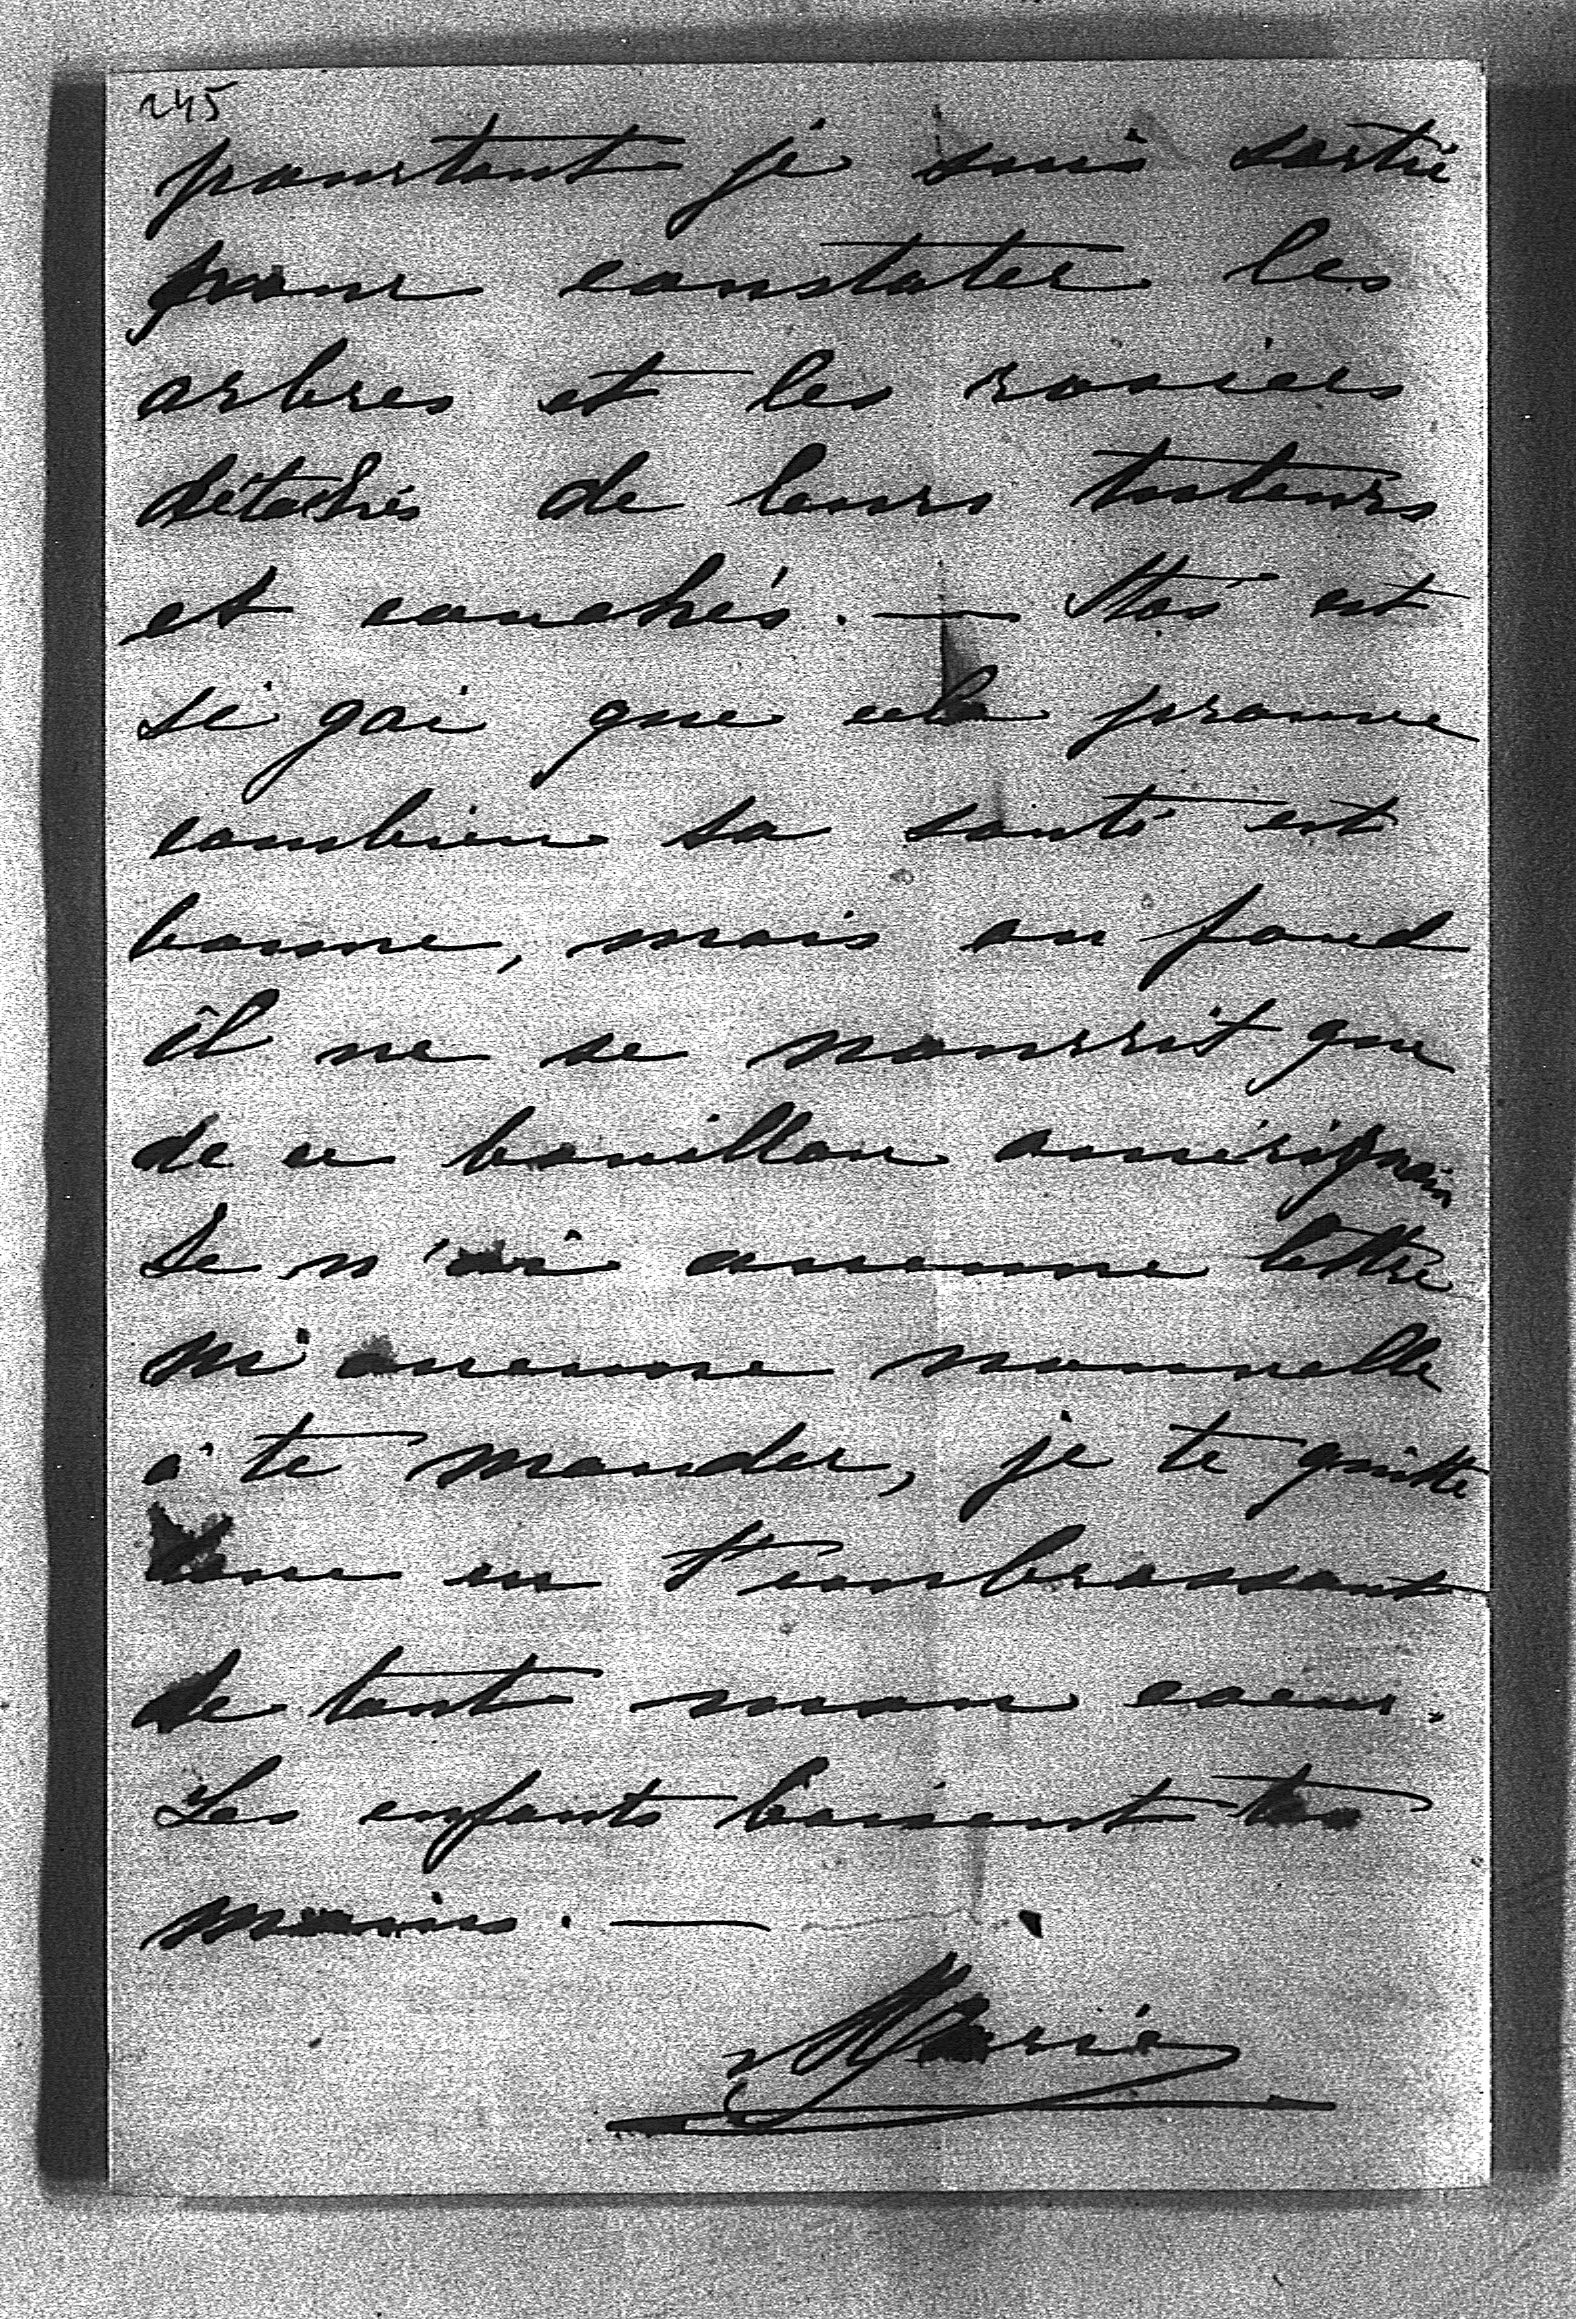 245
pourtant je suis sortie
pour constater les
arbres et les rosiers
détachés de leurs tuteurs
et couchés. — Stas est
si gai que cela prouve
combien sa santé est
bonne, mais au fond
il ne se nourrit que
de ce bouillon amériquain
Je n'ai aucune lettre
ni aucune nouvelle
à te mander, je te quitte
donc en t'embrassant
de tout mon coeur.
Les enfants baisent tes
mains. —
Marie